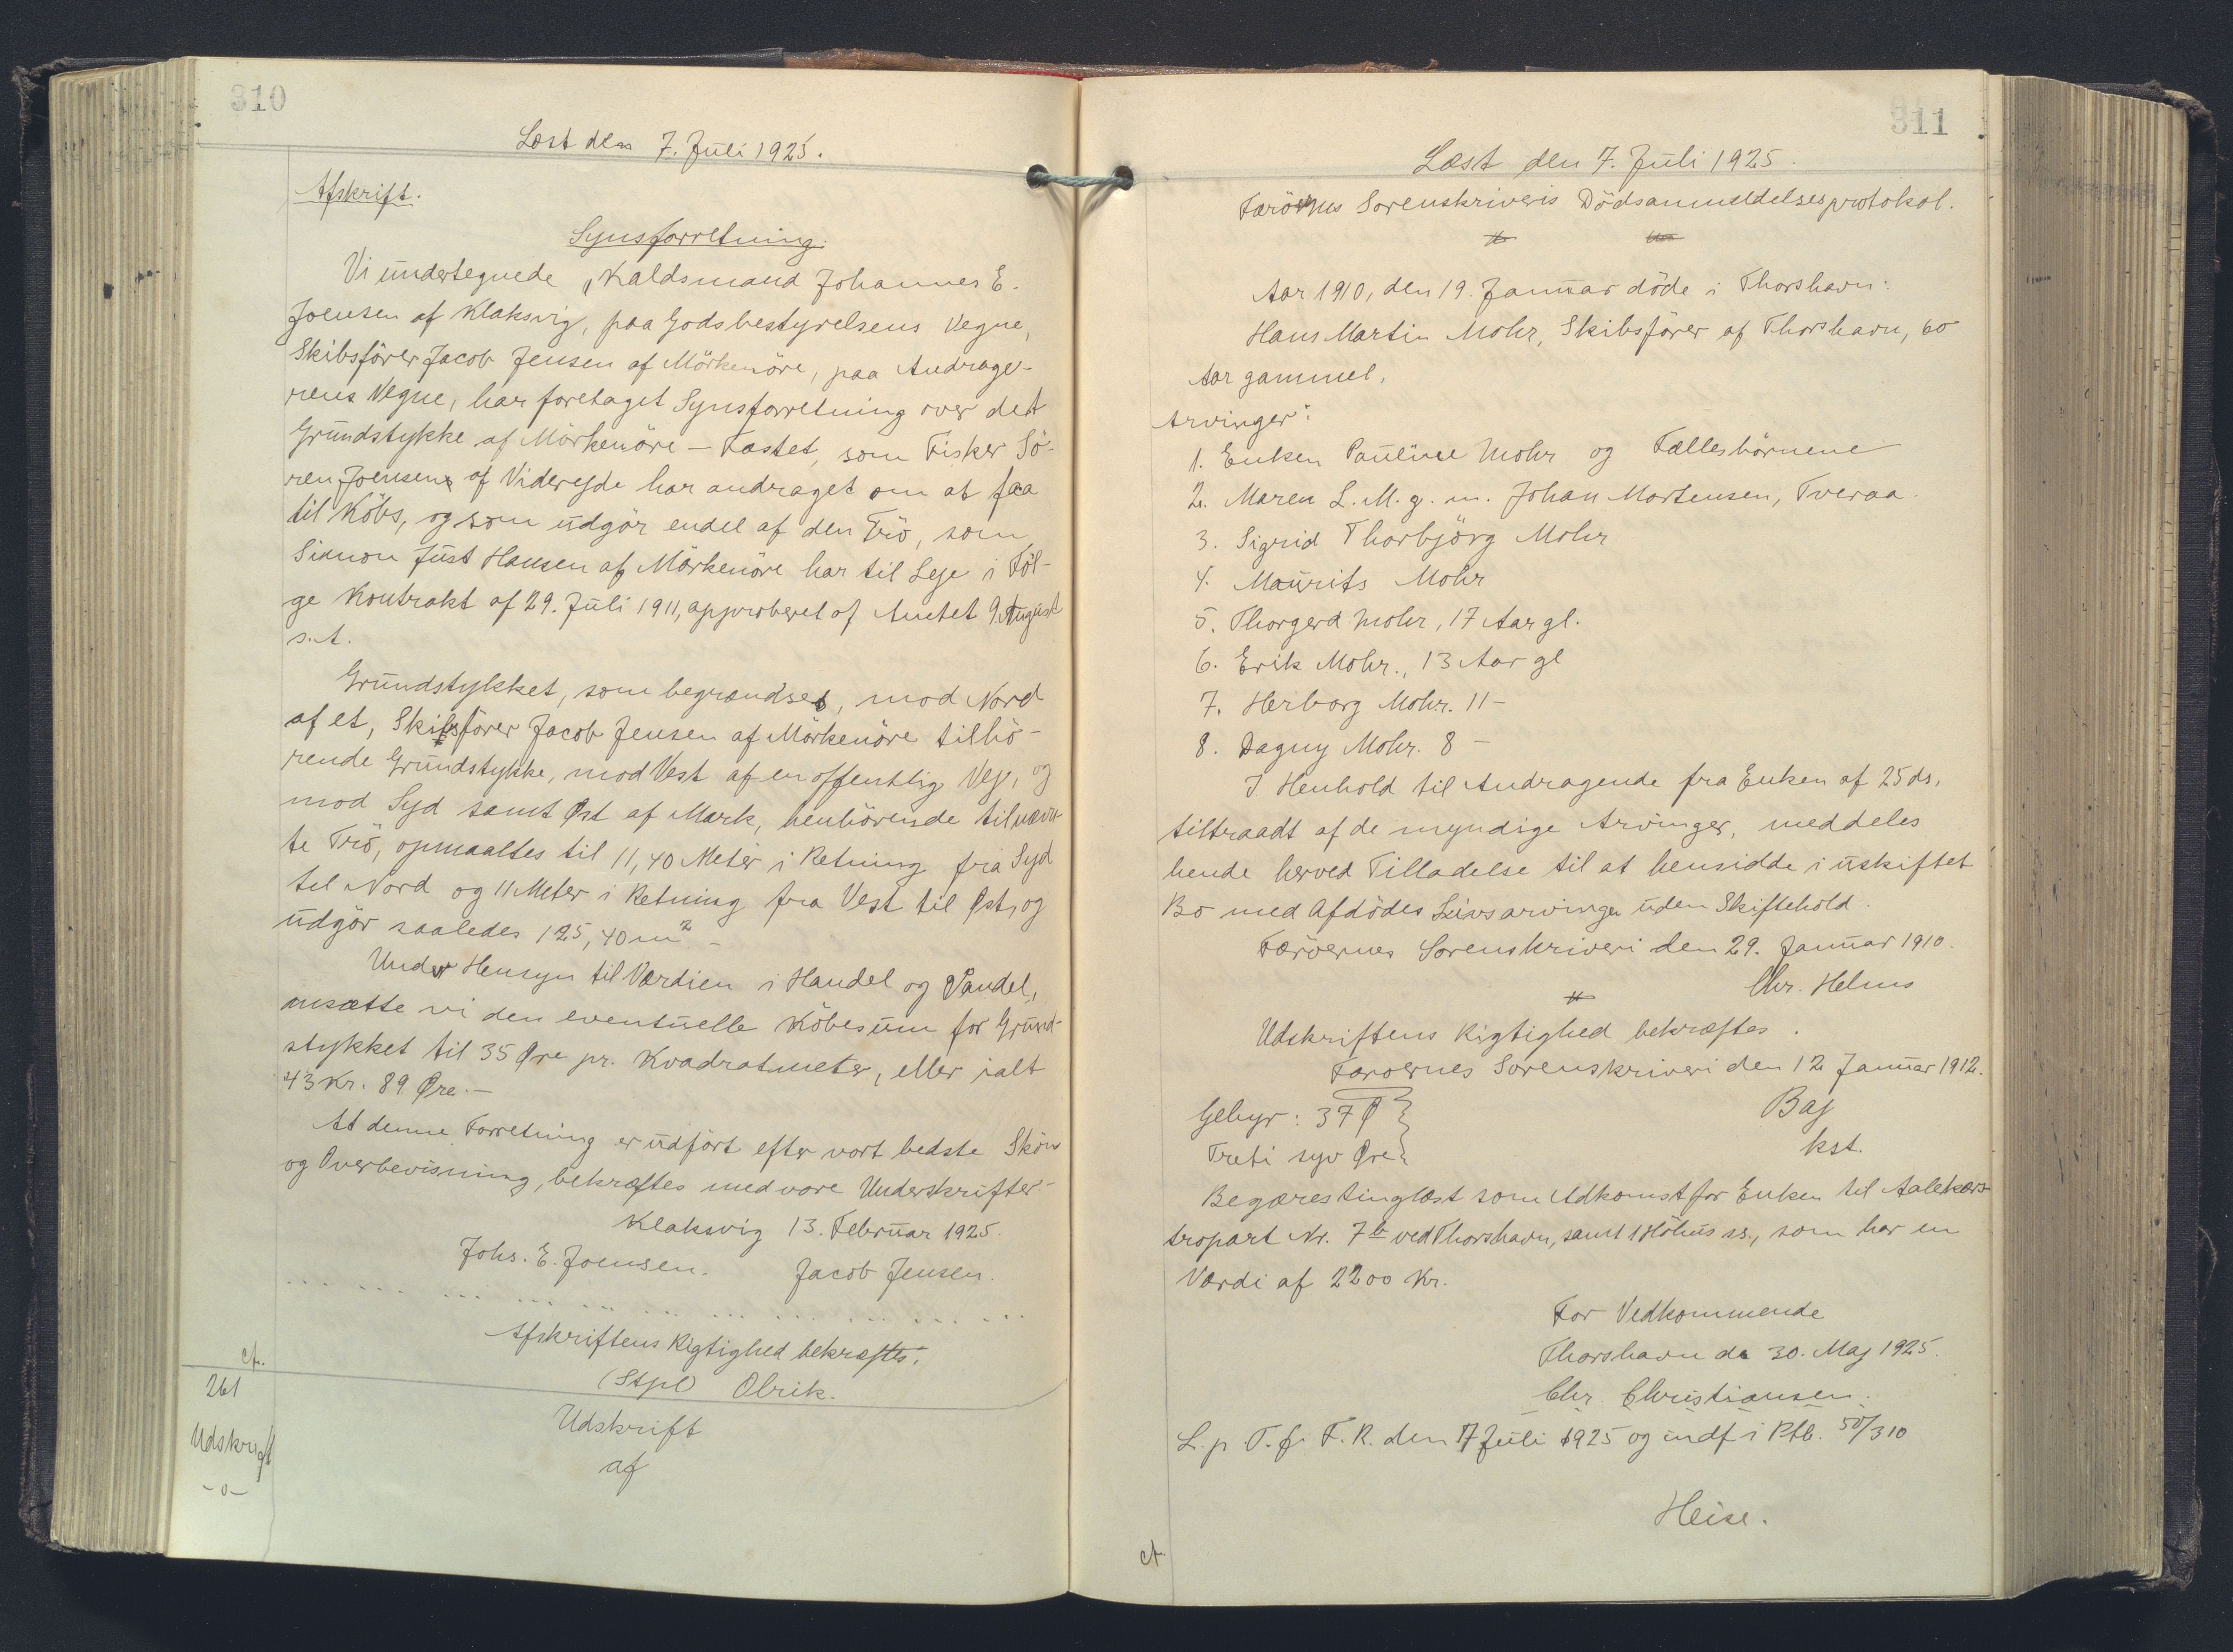 310
Læst den 7. Juli 1925.
Afskrift.
Synsforretning.
Vi undertegnede, Kaldsmand Johannes E.
Joensen af Klaksvig, paa Godsbestyrelsens Vegne,
Skibsförer Jacob Jensen af Mörkenöre, paa Andrage-
rens Vegne, har foretaget Synsforretning over det
Grundstykke af Mörkenöre - Fæstet, som Fisker Sö-
ren Joensen af Viderejde har andraget om at faa
til Köbs, og som udgör endel af den Trö, som
Simon Just Hansen af Mörkenöre har til Leje i Föl-
ge Kontrakt af 29. Juli 1911, approberet af Amtet 9. August
s. A.
Grundstykket, som begrændses, mod Nord
af et, Skibsförer Jacob Jensen af Mörkenöre tilhö-
rende Grundstykke, mod Vest af en offentlig Vej, og
mod Syd samt Øst af Mark, henhörende til nævn-
te Trö, opmaaltes til 11,40 Meter i Retning fra Syd
til Nord og 11 Meter i Retning fra Vest til Øst, og
udgör saaledes 125,40 m² -
Under Hensyn til Værdien i Handel og Vandel,
ansætte vi den eventuelle Köbesum for Grund-
stykket til 35 Øre pr. Kvadratmeter, eller ialt
43 Kr. 89 Øre. -
At denne Forretning er udfört efter vort bedste Skön
og Overbevisning, bekræftes med vore Underskrifter. -
Klaksvig 13. Februar 1925.
Johs. E. Joensen. Jacob Jensen.
... ... ... ... ... ... ... ... ... ... ...
Afskriftens Rigtighed bekræftes.
(Stpl) Olrik.
cf.
261
Udskrift
-o-
Udskrift
af
311
Læst den 7. Juli 1925.
Færöernes Sorenskriveris Dödsanmeldelsesprotokol.
Aar 1910, den 19. Januar döde i Thorshavn:
Hans Martin Mohr, Skibsförer af Thorshavn, 60
Aar gammel.
Arvinger:
1. Enken Pauline Mohr og Fællesbörnene
2. Maren L. M. g. m. Johan Mortensen, Tveraa.
3. Sigrid Thorbjörg Mohr
4. Maurits Mohr
5. Thorgerd Mohr, 17 Aar gl.
6. Erik Mohr., 13 Aar gl
7. Herborg Mohr. 11 -
8. Dagny Mohr. 8 -
I Henhold til Andragende fra Enken af 25 ds.
tiltraadt af de myndige Arvinger, meddeles
hende herved Tilladelse til at hensidde i uskiftet
Bo med Afdödes Livsarvinger uden Skiftehold.
Færöernes Sorenskriveri den 29. Januar 1910.
Chr. Helms
Udskriftens Rigtighed bekræftes.
Færoernes Sorenskriveri den 12 Januar 1912.
Gebyr: 37 Ø
Bay
Treti syv Øre
kst.
Begæres tinglæst som Adkomst for Enken til Aalekærs-
tropart Nr. 7b ved Thorshavn, samt 1 Höhus ss., som har en
Værdi af 2200 Kr.
For Vedkommende
Thorshavn d. 30. Maj 1925.
Chr. Christiansen.
L. p T. f. F. R. den 7 Juli 1925 og indf i Ptb. 50/310
Heise.
cf.